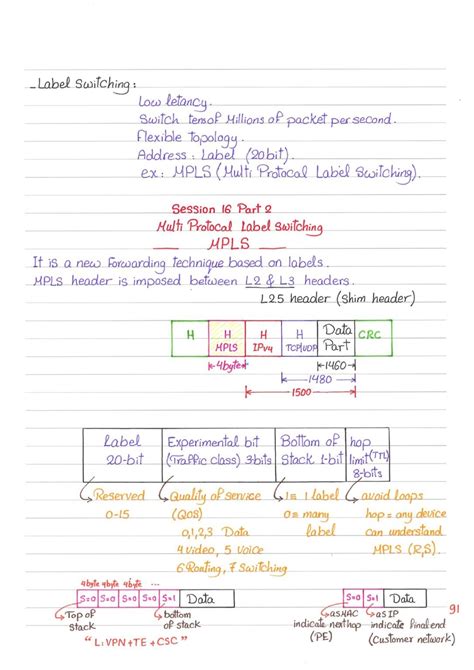 _Label Switching:
Low letancy.
Switch tens of Millions of packet per second.
Flexible topology.
Address: Label (20bit).
ex: MPLS (Multi Protocal Label Switching).
Session 16 Part 2
Multi Protocal Label Switching
MPLS
It is a new Forwarding technique based on labels.
MPLS header is imposed between L2 & L3 headers.
L25 header (Shim header)
H H MPLS H IPv4 H TCP/UDP Data Part CRC
4byte 1460
1480
1500
Label 20-bit Experimental bit (Traffic class) 3bits Bottom of Stack 1-bit hop limit (TTL) 8-bits
Reserved Quality of service 1= 1 label avoid loops
0-15 (QoS) 0= many hop = any device
0,1,2,3 Data label can understand
4 Video, 5 Voice MPLS (R,S).
6 Routing, 7 Switching
4byte 4byte 4byte ...
S=0 S=0 S=0 S=0 S=1 Data S=0 S=1 Data
Top of stack bottom of stack as MAC indicate next hop (PE) as IP indicate final end (Customer network)
"L:VPN+TE+CSC"
91